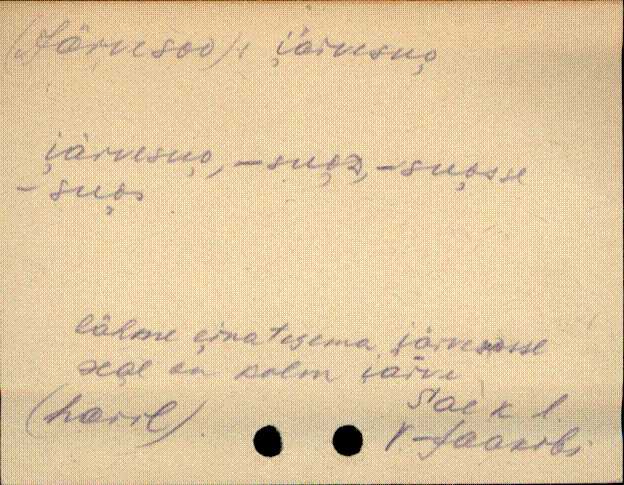 (Järvesoo): i̯ärvesuo̯
i̯ärvesuo̯, -suo̯z, -suo̯sse
-suo̯s
lähme e̯inategema i̯ärvesuosse
seäl on kolm i̯ärve
(haril).
V.-Jaakobi